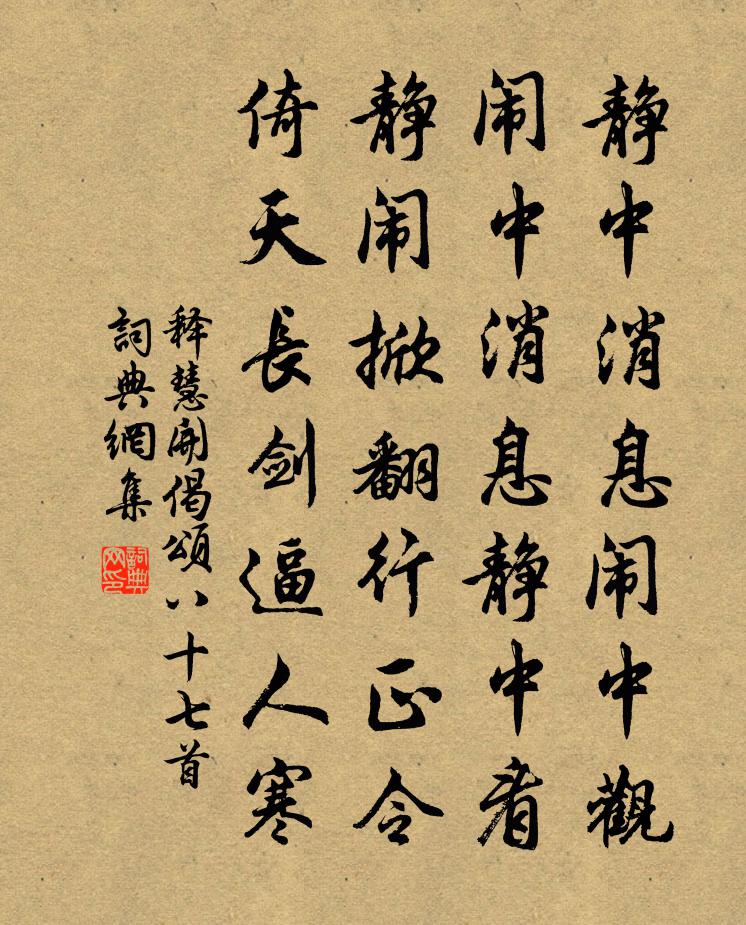 静中消息闹中觀
闹中消息静中看
静闹掀翻行正令
倚天長剑逼人寒
释慧開偈頌八十七首
詞典網集
詞典網印